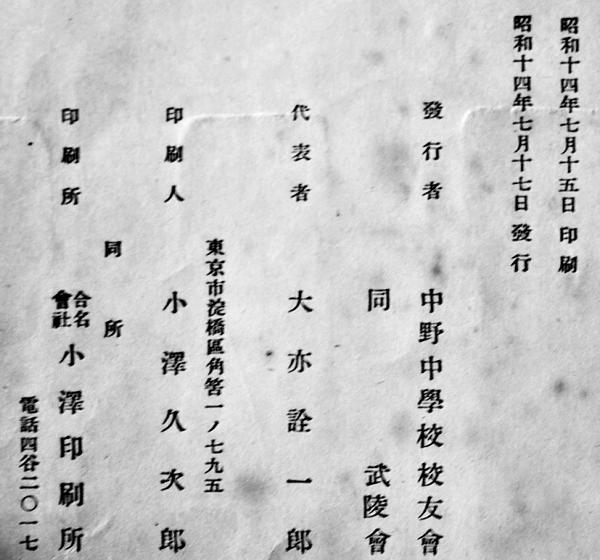 昭和十四年七月十五日印刷
昭和十四年七月十七日發行
發行者 中野中學校校友會
同 武陵會
代表者 大亦詮一郎
東京市淀橋區角筈一ノ七九五
印刷人 小澤久次郎
同所
印刷所 合名會社 小澤印刷所
電話四谷二〇一七